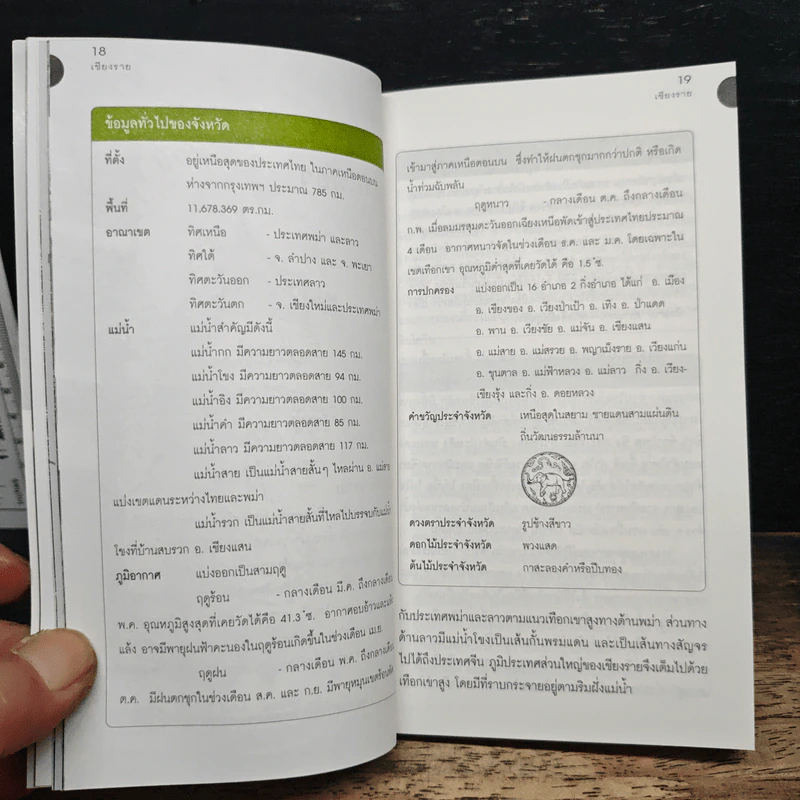 18
เชียงราย
ข้อมูลทั่วไปของจังหวัด
ที่ตั้ง อยู่เหนือสุดของประเทศไทย ในภาคเหนือตอนบน
ห่างจากกรุงเทพฯ ประมาณ 785 กม.
พื้นที่ 11,678.369 ตร.กม.
อาณาเขต ทิศเหนือ - ประเทศพม่า และลาว
ทิศใต้ - จ. ลำปาง และ จ. พะเยา
ทิศตะวันออก - ประเทศลาว
ทิศตะวันตก - จ. เชียงใหม่และประเทศพม่า
แม่น้ำ แม่น้ำสำคัญมีดังนี้
แม่น้ำกก มีความยาวตลอดสาย 145 กม.
แม่น้ำโขง มีความยาวตลอดสาย 94 กม.
แม่น้ำอิง มีความยาวตลอดสาย 100 กม.
แม่น้ำคำ มีความยาวตลอดสาย 85 กม.
แม่น้ำลาว มีความยาวตลอดสาย 117 กม.
แม่น้ำสาย เป็นแม่น้ำสายสั้นๆ ไหลผ่าน อ. แม่สาย
แบ่งเขตแดนระหว่างไทยและพม่า
แม่น้ำรวก เป็นแม่น้ำสายสั้นที่ไหลไปบรรจบกับแม่น้ำ
โขงที่บ้านสบรวก อ. เชียงแสน
ภูมิอากาศ แบ่งออกเป็นสามฤดู
ฤดูร้อน - กลางเดือน มี.ค. ถึงกลางเดือน
พ.ค. อุณหภูมิสูงสุดที่เคยวัดได้คือ 41.3 °ซ. อากาศอบอ้าวและแห้ง
แล้ง อาจมีพายุฝนฟ้าคะนองในฤดูร้อนเกิดขึ้นในช่วงเดือน เม.ย.
ฤดูฝน - กลางเดือน พ.ค. ถึงกลางเดือน
ต.ค. มีฝนตกชุกในช่วงเดือน ส.ค. และ ก.ย. มีพายุหมุนเขตร้อนพัด
19
เชียงราย
เข้ามาสู่ภาคเหนือตอนบน ซึ่งทำให้ฝนตกชุกมากกว่าปกติ หรือเกิด
น้ำท่วมฉับพลัน
ฤดูหนาว - กลางเดือน ต.ค. ถึงกลางเดือน
ก.พ. เมื่อลมมรสุมตะวันออกเฉียงเหนือพัดเข้าสู่ประเทศไทยประมาณ
4 เดือน อากาศหนาวจัดในช่วงเดือน ธ.ค. และ ม.ค. โดยเฉพาะใน
เขตเทือกเขา อุณหภูมิต่ำสุดที่เคยวัดได้ คือ 1.5 °ซ.
การปกครอง แบ่งออกเป็น 16 อำเภอ 2 กิ่งอำเภอ ได้แก่ อ. เมือง
อ. เชียงของ อ. เวียงป่าเป้า อ. เทิง อ. ป่าแดด
อ. พาน อ. เวียงชัย อ. แม่จัน อ. เชียงแสน
อ. แม่สาย อ. แม่สรวย อ. พญาเม็งราย อ. เวียงแก่น
อ. ขุนตาล อ. แม่ฟ้าหลวง อ. แม่ลาว กิ่ง อ. เวียง-
เชียงรุ้ง และกิ่ง อ. ดอยหลวง
คำขวัญประจำจังหวัด เหนือสุดในสยาม ชายแดนสามแผ่นดิน
ถิ่นวัฒนธรรมล้านนา
ดวงตราประจำจังหวัด รูปช้างสีขาว
ดอกไม้ประจำจังหวัด พวงแสด
ต้นไม้ประจำจังหวัด กาสะลองคำหรือปีบทอง
กับประเทศพม่าและลาวตามแนวเทือกเขาสูงทางด้านพม่า ส่วนทาง
ด้านลาวมีแม่น้ำโขงเป็นเส้นกั้นพรมแดน และเป็นเส้นทางสัญจร
ไปได้ถึงประเทศจีน ภูมิประเทศส่วนใหญ่ของเชียงรายจึงเต็มไปด้วย
เทือกเขาสูง โดยมีที่ราบกระจายอยู่ตามริมฝั่งแม่น้ำ